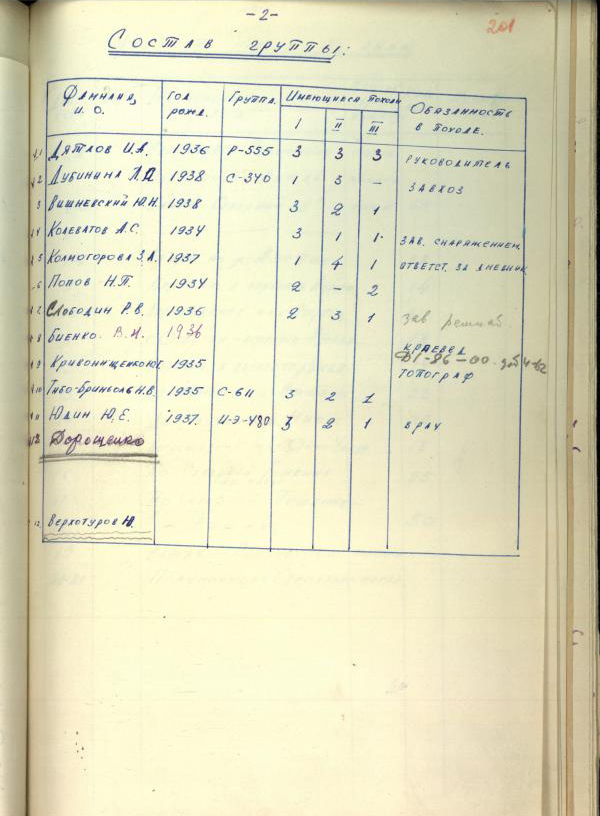 -2-
201
Состав группы:
Фамилия, и. о. Год рожд. Группа. Имеющиеся походы Обязанность в походе.
I II III
1 Дятлов И.А. 1936 Р-555 3 3 3 руководитель
2 Дубинина Л.А 1938 С-340 1 3 – завхоз
3 Вишневский Ю.Н. 1938 3 2 1
4 Колеватов А.С. 1934 3 1 1. зав. снаряжением
5 Колмогорова З.А. 1937 1 4 1 ответст. за дневник
6 Попов Н.П. 1934 2 – 2
7 Слободин Р.В. 1936 2 3 1 зав
8 Биенко В. 1936 краевед
Д1-86-00. доб 4-62
9 Кривонищенко Ю Г 1935 топограф
10 Тибо-Бриньоль Н.В. 1935 С-611 3 2 1
11 Юдин Ю.Е. 1937. И-Э-480 3 2 1 врач
12 Дорошенко
13. Верхотуров Ю.